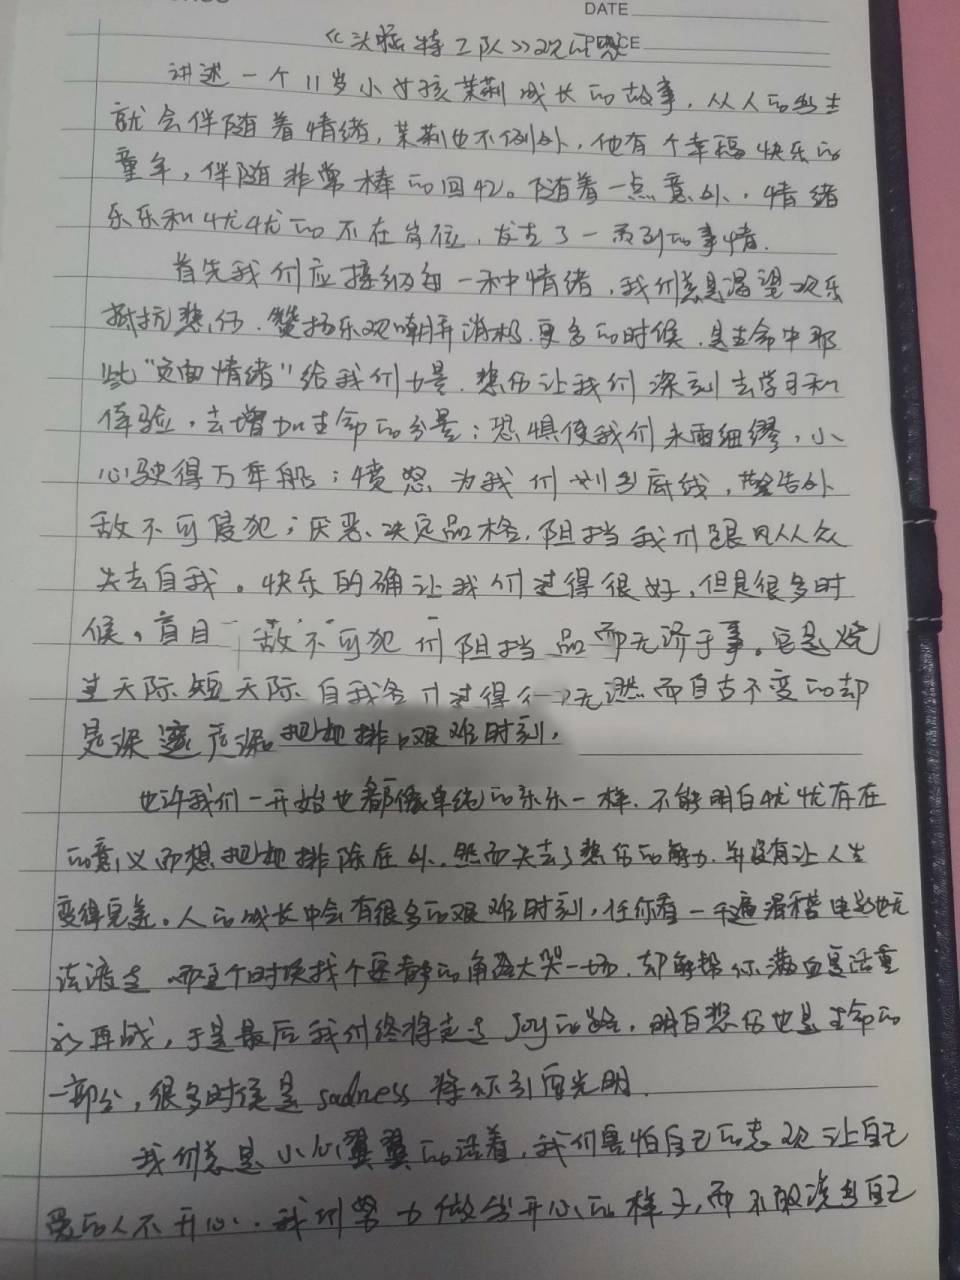 DATE
《头脑特工队》观后感
讲述一个11岁小女孩茉莉成长的故事，从人的出生
就会伴随着情绪，茉莉也不例外，他有个幸福快乐的
童年，伴随非常棒的回忆。随着一点意外，情绪
乐乐和忧忧的不在岗位，发生了一系列的事情.
首先我们应接纳每一种情绪，我们总是渴望欢乐
抵抗悲伤.赞扬乐观嘲弄消极.更多的时候.是生命中那
些"负面情绪"给我们力量.悲伤让我们深刻去学习和
体验，去增加生命的分量；恐惧使我们未雨绸缪，小
心驶得万年船；愤怒为我们划出底线，警告外
敌不可侵犯；厌恶、决定品格，阻挡我们跟风从众
失去自我。快乐的确让我们过得很好，但是很多时
候，盲目 敌不可犯 们阻挡品而无济于事。它是烧
过天际 短天际 自我 过得 而自古不变的却
是深邃 把她排 艰难时刻，
也许我们一开始也都像单纯的乐乐一样.不能明白忧忧存在
的意义而想把她排除在外.然而失去了悲伤的能力.并没有让人生
变得完美。人的成长中会有很多的艰难时刻，任你看一千遍滑稽电影也无
法渡过.而这个时候找个安静的角落大哭一场.却能帮你满血复活重
新再战，于是最后我们终将走过Joy的路，明白悲伤也是生命的
一部分，很多时候是sadness将你引向光明.
我们总是小心翼翼的活着，我们害怕自己的悲观让自己
爱的人不开心.我们努力做出开心的样子，而不敢说出自己